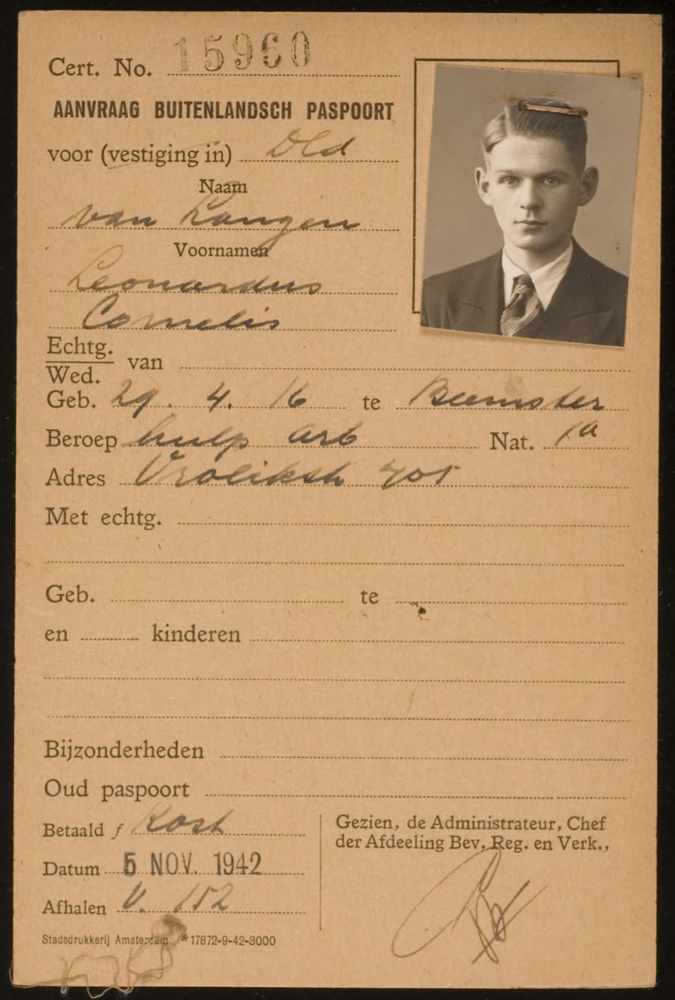 Cert. No. 15960
AANVRAAG BUITENLANDSCH PASPOORT
voor (vestiging in) Dld
Naam
van Langen
Voornamen
Leonardus
Cornelis
Echtg.
Wed. van
Geb. 29. 4. 16 te Beemster
Beroep hulp arb Nat. 1a
Adres Vrolikstr 405
Met echtg.
Geb. te
en kinderen
Bijzonderheden
Oud paspoort
Betaald f Kost
Datum 5 NOV. 1942
Afhalen V. 152
Gezien, de Administrateur, Chef
der Afdeeling Bev. Reg. en Verk.,
Stadsdrukkerij Amsterdam 17872-9-42-3000